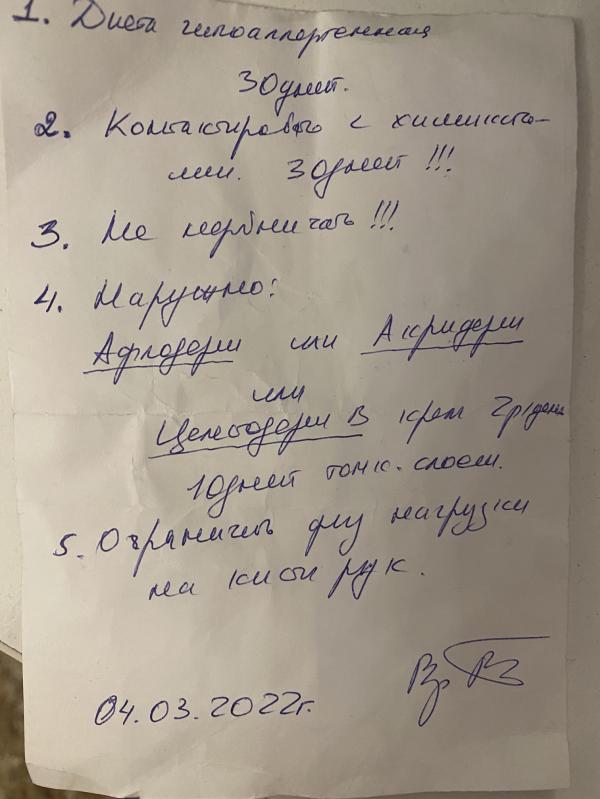 1. Диета гипоаллергенная
30 дней.
2. Контактировать с химиката-
ми. 30 дней!!!
3. Не нервничать!!!
4. Наружно:
Афлодерм или Акридерм
или
Целестодерм В крем 2р/день
10дней тонк. слоем.
5. Ограничить физ нагрузки
на кисти рук.
04.03.2022г.